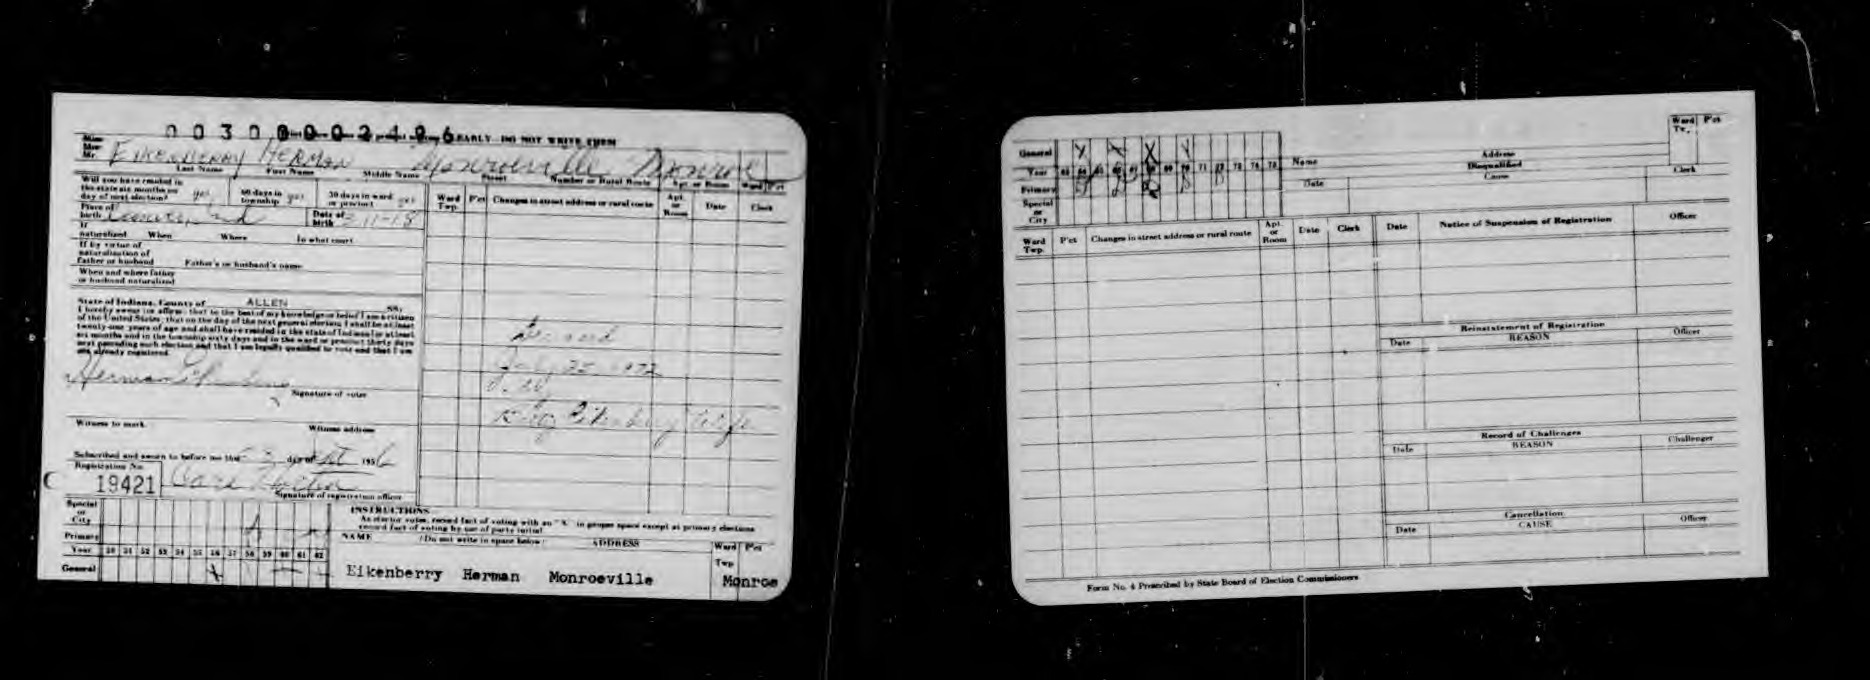 00300002496
EARLY - DO NOT WRITE THEM
Miss
Mrs.
Mr. EIKENBERRY HERMAN Monroeville Monroe
Last Name First Name Middle Name Street Number or Rural Route Apt. or Room Ward P'ct
Will you have resided in the state six months on day of next election? yes 60 days in township yes 30 days in ward or precinct yes
Place of birth Date of birth 11-18
If naturalized When Where In what court
If by virtue of naturalization of Father or husband Father's or husband's name
When and where father or husband naturalized
Ward Twp. P'ct Changes in street address or rural route Apt. or Room Date Clerk
State of Indiana, County of ALLEN SS:
I hereby swear (or affirm) that to the best of my knowledge or belief I am a citizen
of the United States; that on the day of the next general election I shall be at least
twenty-one years of age and shall have resided in the state of Indiana for at least
six months and in the township sixty days and in the ward or precinct thirty days
next preceding such election and that I am legally qualified to vote and that I am
not already registered.
Herman
Signature of voter
25 1972
Eikenberry Wife
Witness to mark Witness address
Subscribed and sworn to before me this day of 1956
Registration No.
19421
Signature of registration officer
Special or City
Primary
Year 50 51 52 53 54 55 56 57 58 59 60 61 62
General
INSTRUCTIONS
As elector votes, record fact of voting with an "X" in proper space except at primary elections
record fact of voting by use of party initial
NAME (Do not write in space below) ADDRESS Ward Twp P'ct
Eikenberry Herman Monroeville Monroe
General X X X
Year 63 64 65 66 67 68 69 70 71 72 73 74 75
Primary
Special or City
Name Address Ward Tp. P'ct
Disqualified
Date Cause Clerk
Ward Twp. P'ct Changes in street address or rural route Apt. or Room Date Clerk
Date Notice of Suspension of Registration Officer
Reinstatement of Registration
Date REASON Officer
Record of Challenges
Date REASON Challenger
Cancellation
Date CAUSE Officer
Form No. 4 Prescribed by State Board of Election Commissioners